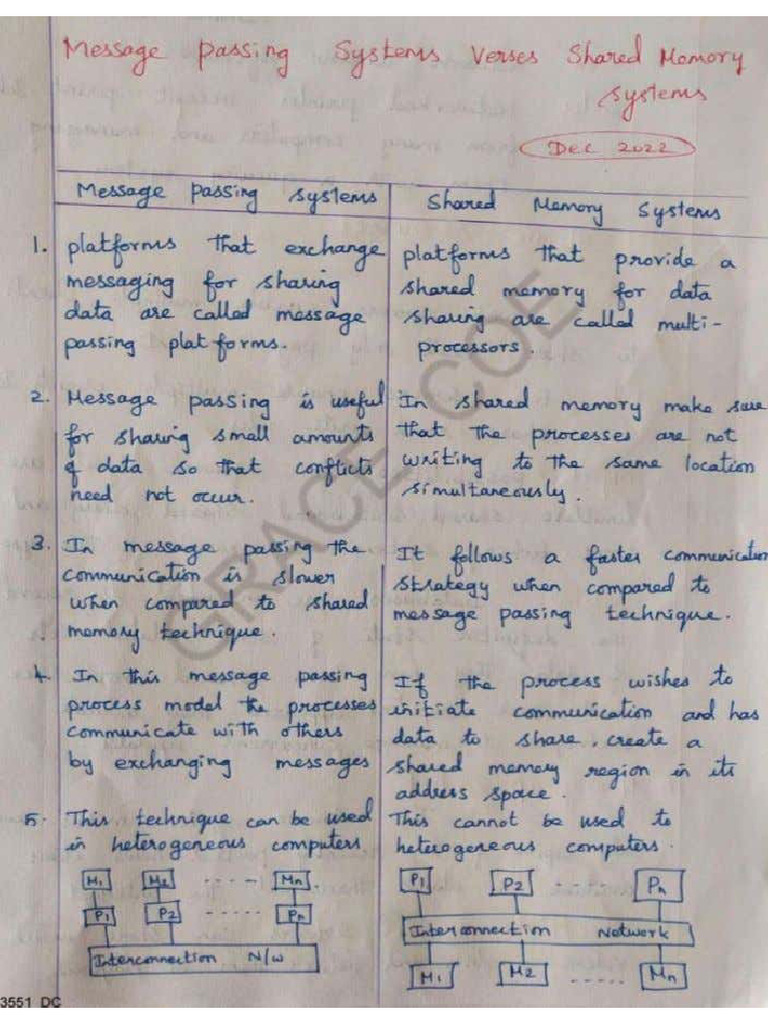 Message passing Systems Verses Shared Memory
systems
Dec 2022
Message passing systems
Shared Memory Systems
1. platforms that exchange
messaging for sharing
data are called message
passing platforms.
platforms that provide a
shared memory for data
sharing are called multi-
processors.
2. Message passing is useful
for sharing small amounts
of data so that conflicts
need not occur.
In shared memory make sure
that the processes are not
writing to the same location
simultaneously.
3. In message passing the
communication is slower
when compared to shared
memory technique.
It follows a faster communication
strategy when compared to
message passing technique.
4. In this message passing
process model the processes
communicate with others
by exchanging messages
If the process wishes to
initiate communication and has
data to share, create a
shared memory region in its
address space.
5. This technique can be used
in heterogeneous computers
This cannot be used to
heterogeneous computers.
M1 M2 ---- Mn
P1 P2 ----- Pn
Interconnection N/w
P1 P2 ----- Pn
Interconnection Network
M1 M2 ..... Mn
GRACE COE
3551_DC